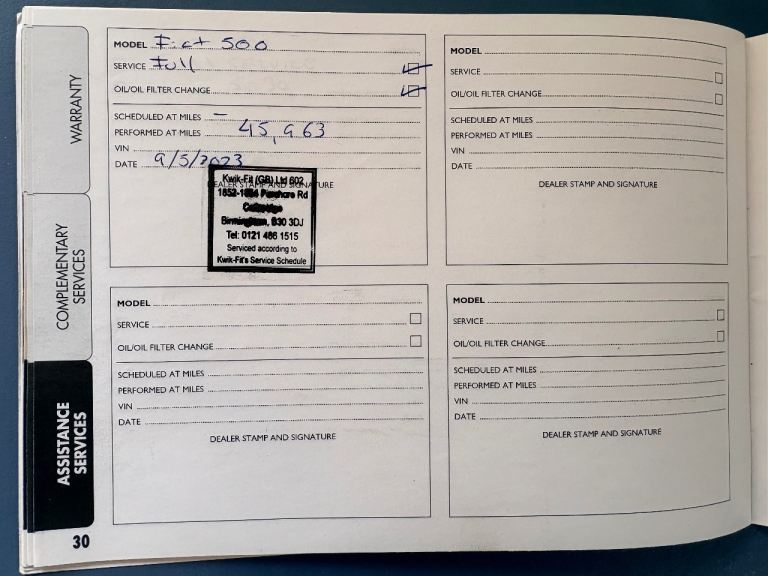 WARRANTY
COMPLEMENTARY
SERVICES
ASSISTANCE
SERVICES
30
MODEL Fiat 500
SERVICE Full
OIL/OIL FILTER CHANGE
SCHEDULED AT MILES –
PERFORMED AT MILES 45,963
VIN
DATE 9/5/2023
DEALER STAMP AND SIGNATURE
Kwik-Fit (GB) Ltd 602
Pershore Rd
Birmingham, B30 3DJ
Tel: 0121 486 1515
Serviced according to
Kwik-Fit's Service Schedule
MODEL
SERVICE
OIL/OIL FILTER CHANGE
SCHEDULED AT MILES
PERFORMED AT MILES
VIN
DATE
DEALER STAMP AND SIGNATURE
MODEL
SERVICE
OIL/OIL FILTER CHANGE
SCHEDULED AT MILES
PERFORMED AT MILES
VIN
DATE
DEALER STAMP AND SIGNATURE
MODEL
SERVICE
OIL/OIL FILTER CHANGE
SCHEDULED AT MILES
PERFORMED AT MILES
VIN
DATE
DEALER STAMP AND SIGNATURE